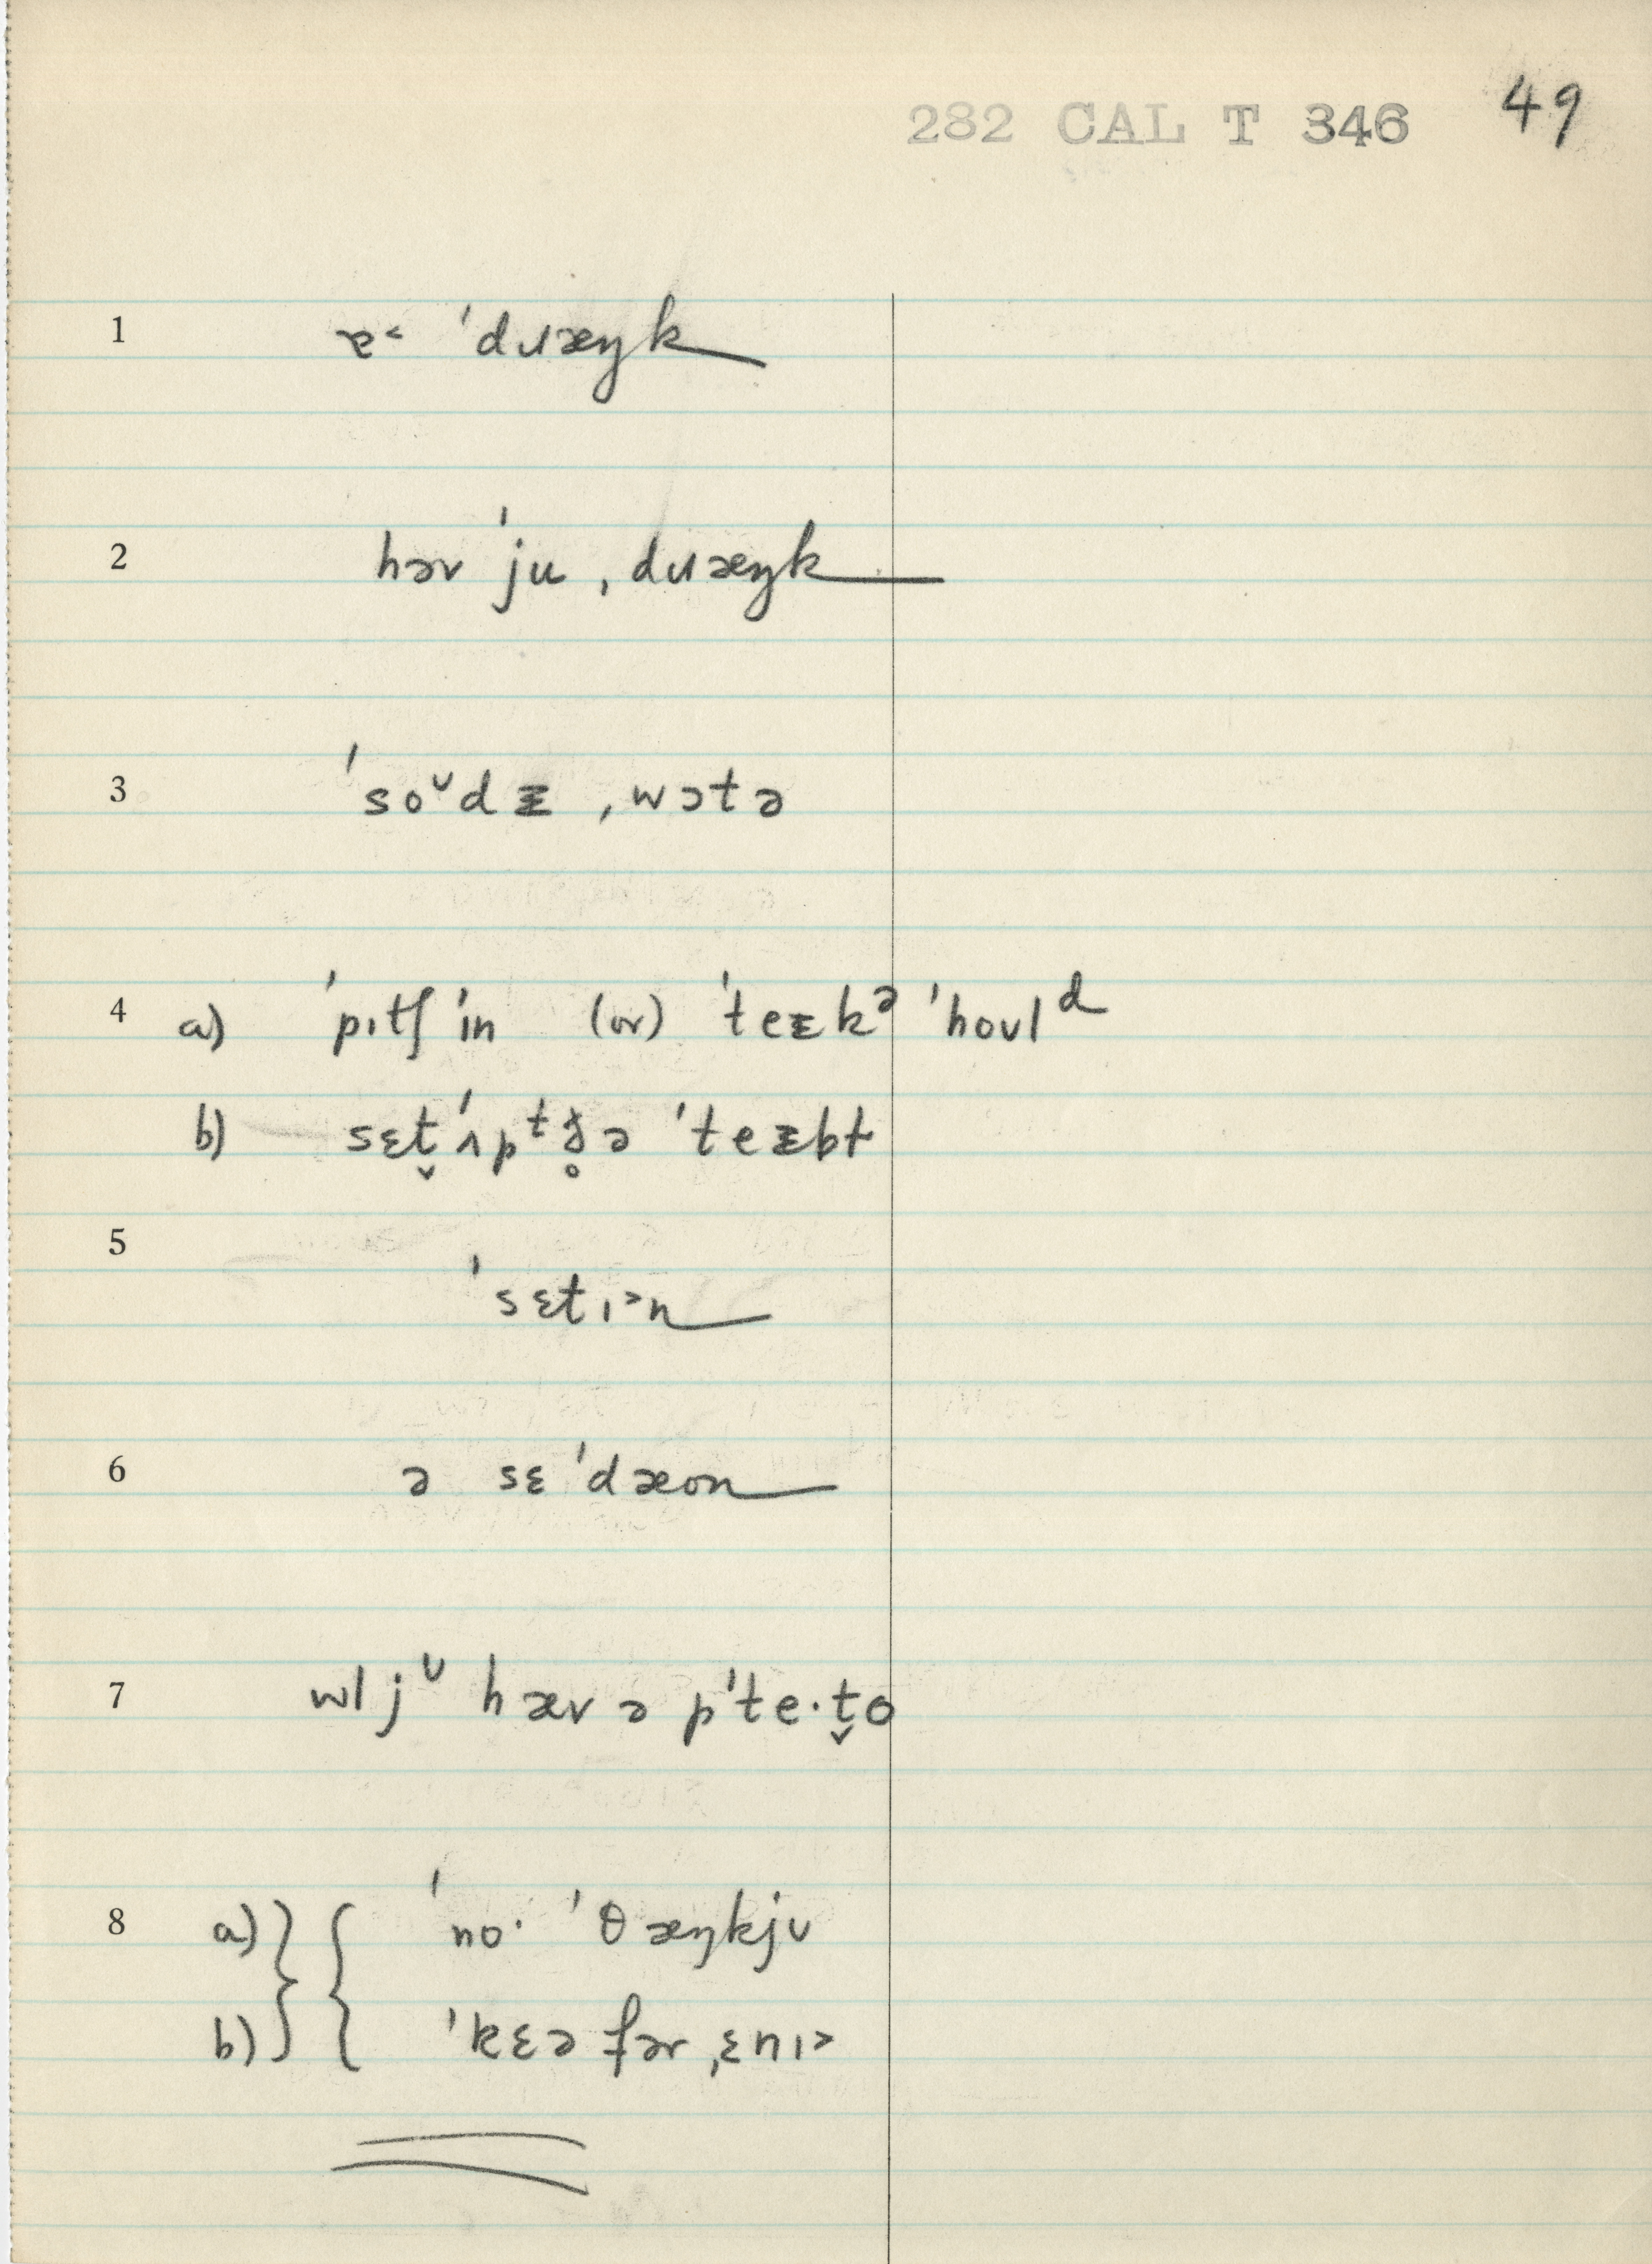 282 CAL T 346 49
1 ɐ˂ ˈdɹæŋk
2 həv ˈju ˌdɹæŋk
3 ˈsoᶷdᵻ ˌwɔtə
4 a) ˈpɪtʃ ˈɪn (or) ˈteᵻkᵊ ˈhoʊlᵈ
b) sɛt̬ ˈʌpᵗ ð̥ə ˈteᵻbɫ
5 ˈsɛtɪ˃n
6 ə sɛ ˈdæon
7 wl jᶷ hæv ə pˈte·t̬o
8 a) ˈno· ˈθæŋkjʊ
b) ˈkɛə fər ˌɛnɪ˃